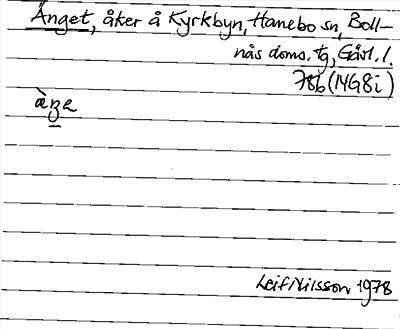 Änget, åker å Kyrkbyn, Hanebo sn, Boll-
näs doms. tg, Gävl. l.
78b (14G8i)
àŋe
Leif Nilsson 1978